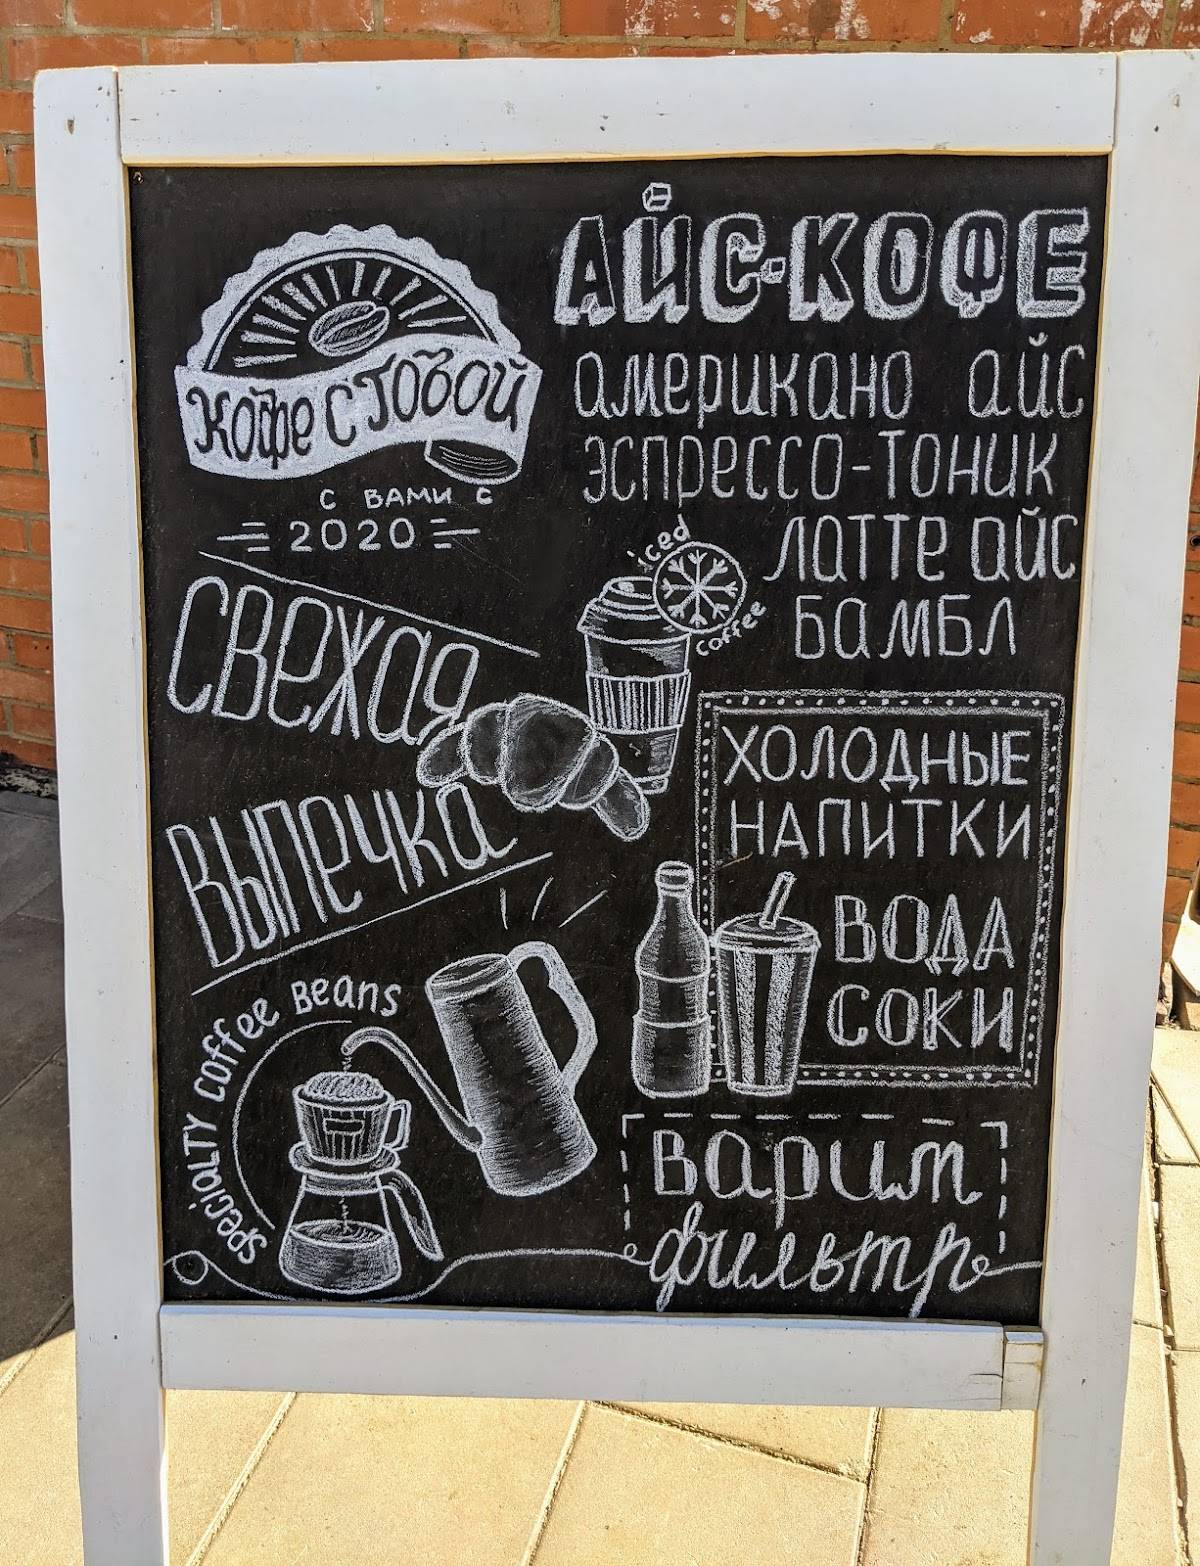 КОФЕ С ТОБОЙ
С ВАМИ С
2020
АЙС-КОФЕ
американо айс
эспрессо-тоник
латте айс
бамбл
iced
coffee
СВЕЖАЯ
ВЫПЕЧКА
ХОЛОДНЫЕ
НАПИТКИ
ВОДА
СОКИ
SPECIOLTY COFFEE BEANS
Варим
фильтр